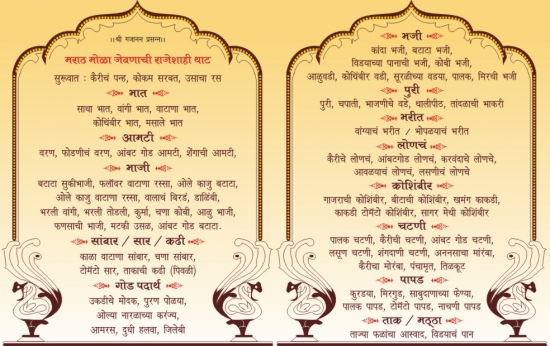 ॥श्री गजानन प्रसन्न॥
मराठ मोळा जेवणाची राजेशाही थाट
सुरूवात : कैरीचं पन्ह, कोकम सरबत, उसाचा रस
भात
साधा भात, वांगी भात, वाटाणा भात,
कोथिंबीर भात, मसाले भात
आमटी
वरण, फोडणीचं वरण, आंबट गोड आमटी, शेंगाची आमटी,
भाजी
बटाटा सुकीभाजी, फलॉवर वाटाणा रस्सा, ओले काजु बटाटा,
ओले काजु वाटाणा रस्सा, वालाचं बिरडं, डाळिंबी,
भरली वांगी, भरली तोंडली, कुर्मा, चणा कोबी, आळु भाजी,
फणसाची भाजी, मटकी उसळ, आंबट गोड बटाटा.
सांबार / सार / कढी
काळा वाटाणा सांबार, चणा सांबार,
टोमॅटो सार, ताकाची कढी (पिवळी)
गोड पदार्थ
उकडीचे मोदक, पुरण पोळ्या,
ओल्या नारळाच्या करंज्या,
आमरस, दुधी हलवा, जिलेबी
भजी
कांदा भजी, बटाटा भजी,
विडयाच्या पानाची भजी, कोबी भजी,
आळुवडी, कोथिंबीर वडी, सूरळीच्या वडया, पालक, मिरची भजी
पुरी
पुरी, चपाती, भाजणीचे वडे, थालीपीठ, तांदळाची भाकरी
भरीत
वांग्याचं भरीत / भोपळयाचं भरीत
लोणचं
कैरीचे लोणचं, आंबटगोड लोणचं, करवंदाचे लोणचे,
आवळयाचं लोणचं, लसणीचं लोणचं
कोशिंबीर
गाजराची कोशिंबीर, बीटाची कोशिंबीर, खमंग काकडी,
काकडी टोमॅटो कोशिंबीर, सागर मेथी कोशिंबीर
चटणी
पालक चटणी, कैरीची चटणी, आंबट गोड चटणी,
लसूण चटणी, शेंगदाणी चटणी, अननसाचा मोरंबा,
कैरीचा मोरंबा, पंचामृत, तिळकूट
पापड
कुरडया, मिरगुड, साबुदाणाच्या फेण्या,
पालक पापड, टोमॅटो पापड, नाचणी पापड
ताक / मठ्ठा
ताज्या फळांचा आस्वाद, विडयाचं पान